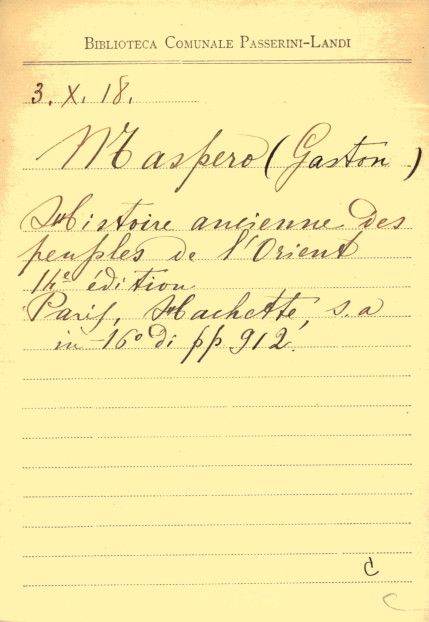 BIBLIOTECA COMUNALE PASSERINI-LANDI
3. X. 18.
Maspero (Gaston)
Histoire ancienne des
peuples de l'Orient
14e édition
Paris, Hachette, s.a
in-16° di pp 912.
C